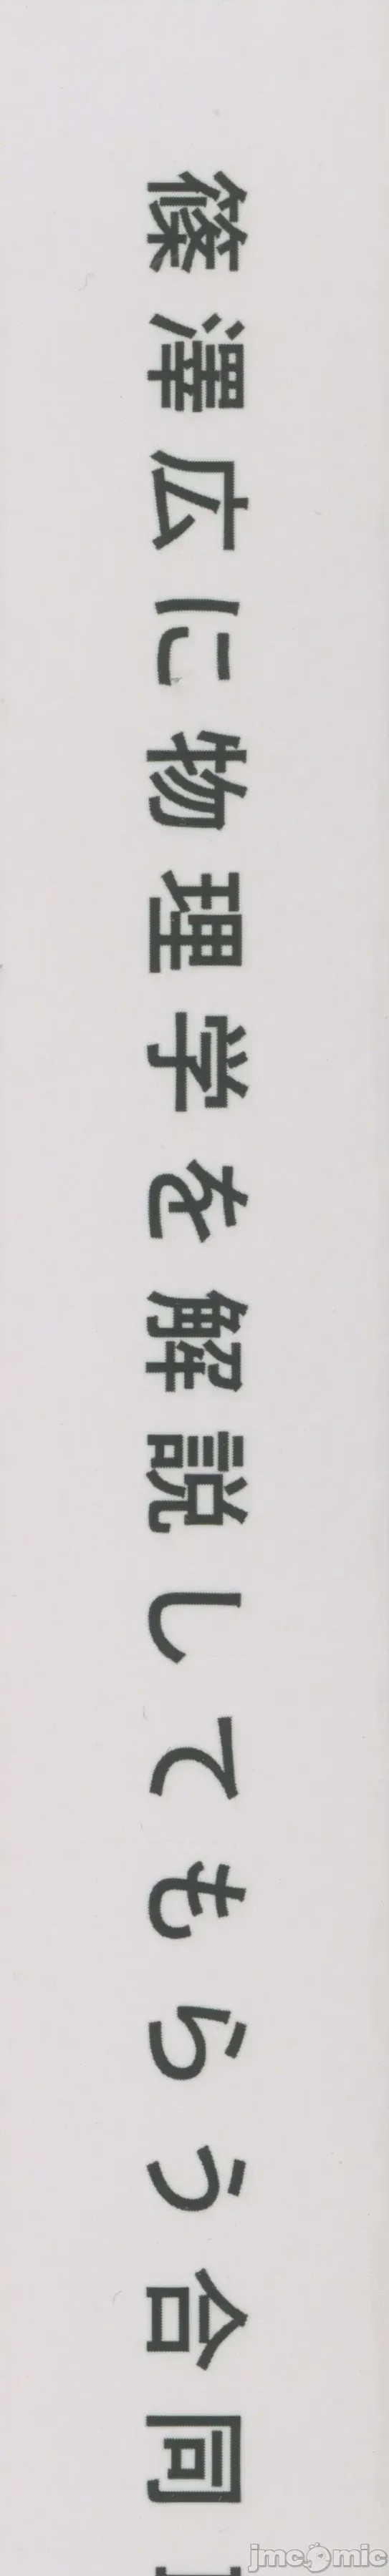 篠澤広に物理学を解説してもらう合同
jmc mic